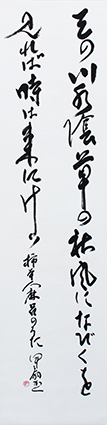 天の川水陰草の秋風になびくを
見れば時は来にけり 柿本人麻呂のうた